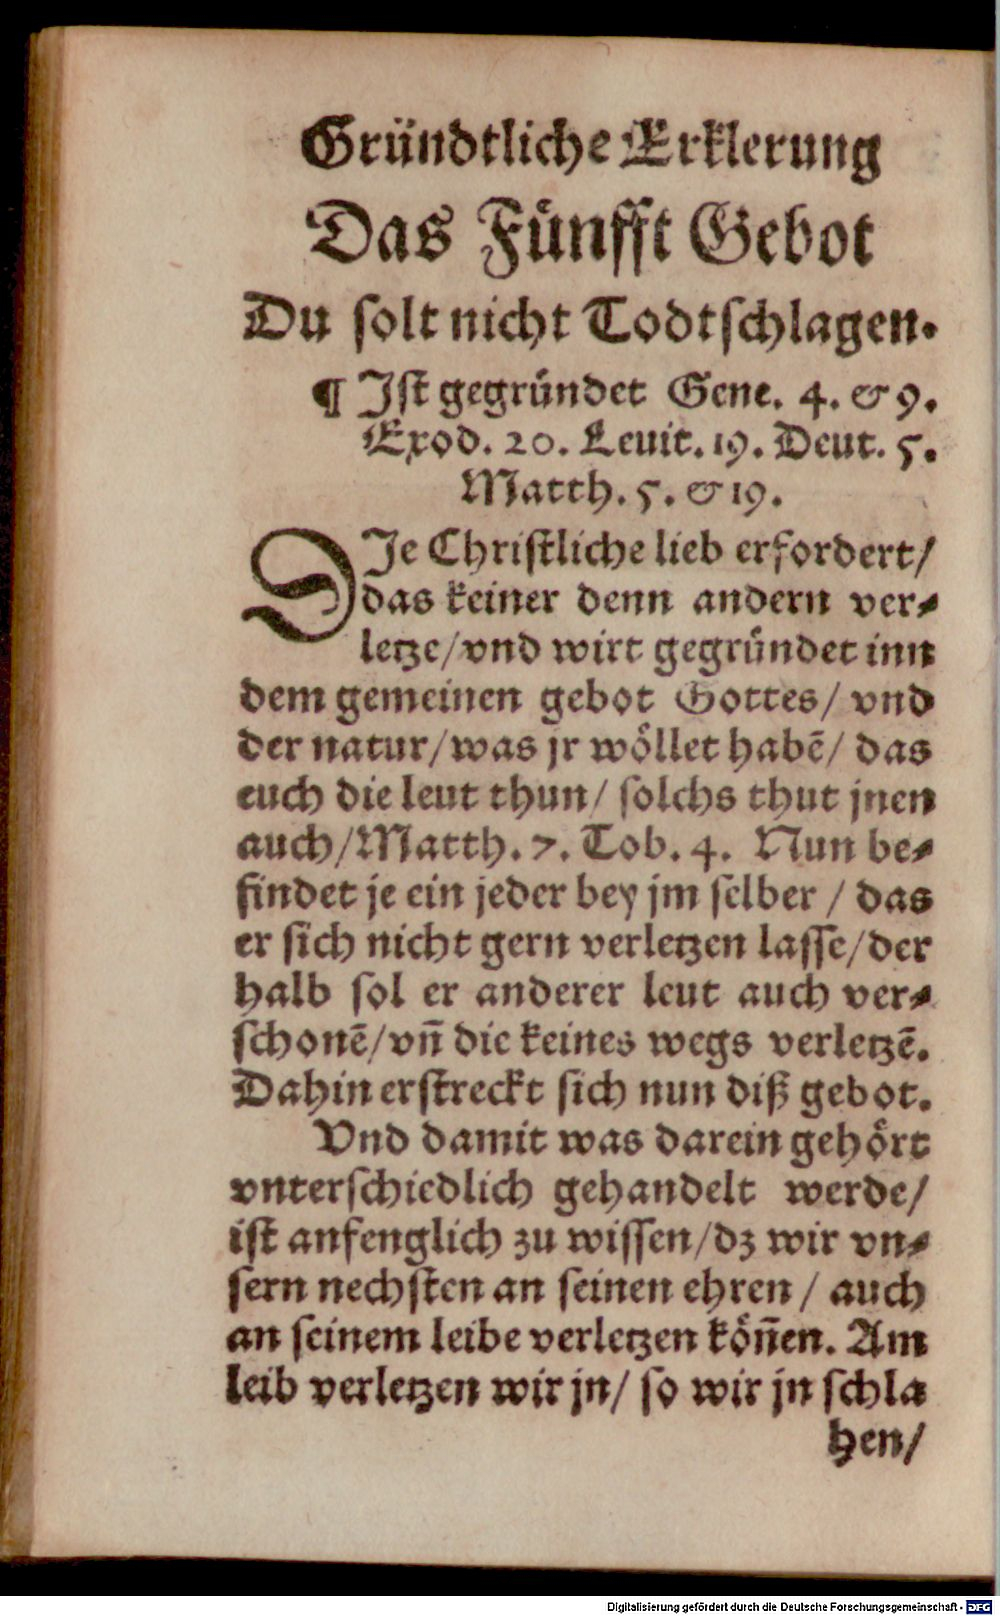 Gründtliche Erklerung
Das Fünfft Gebot
Du solt nicht Todtschlagen.
¶ Ist gegründet Gene. 4. & 9.
Exod. 20. Leuit. 19. Deut. 5.
Matth. 5. & 19.
DIe Christliche lieb erfordert/
das keiner denn andern ver⸗
letze/vnd wirt gegründet inn
dem gemeinen gebot Gottes/ vnd
der natur/was jr wöllet habē/ das
euch die leut thun/ solchs thut jnen
auch/Matth. 7. Tob. 4. Nun be⸗
findet je ein jeder bey jm selber / das
er sich nicht gern verletzen lasse/der
halb sol er anderer leut auch ver⸗
schonē/vn̄ die keines wegs verletzē.
Dahin erstreckt sich nun diß gebot.
Vnd damit was darein gehört
vnterschiedlich gehandelt werde/
ist anfenglich zu wissen/dz wir vn⸗
sern nechsten an seinen ehren / auch
an seinem leibe verletzen kön̄en. Am
leib verletzen wir jn/ so wir jn schla
hen/
Digitalisierung gefördert durch die Deutsche Forschungsgemeinschaft - DFG